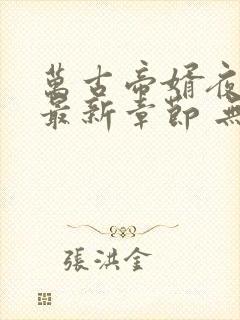 萬古帝婿夜
最新章節 無
張洪金